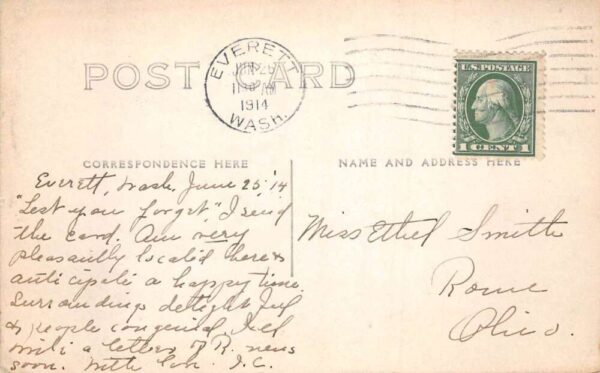 POST CARD
EVERETT
JUN 25
11 30 AM
1914
WASH.
U.S. POSTAGE
1 CENT 1
CORRESPONDENCE HERE
NAME AND ADDRESS HERE
Everett, Wash. June 25, '14
"Lest you forget," I send
the card. Am very
pleasantly located here &
anticipate a happy time.
Surroundings delightful
& people congenial.
write a letter of R. news
soon. With love. I.C.
Miss Ethel Smith
Rome
Ohio.